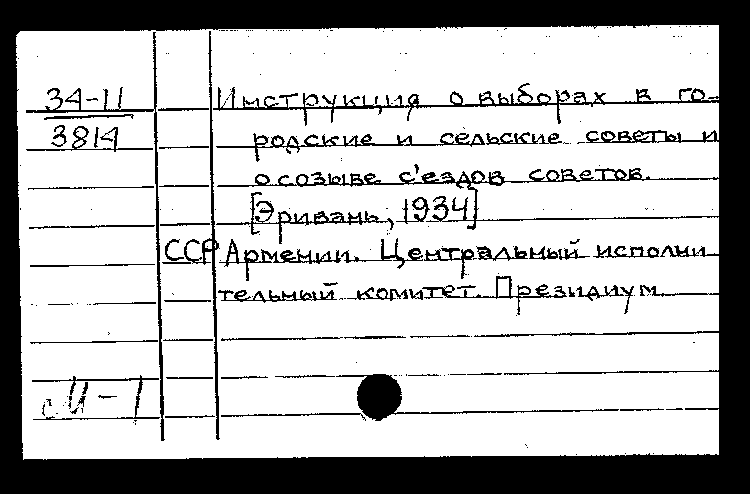 34-11
3814
Инструкция о выборах в го-
родские и сельские советы и
о созыве с'ездов советов.
[Эривань, 1934]
ССР Армении. Центральный исполни
тельный комитет. Президиум